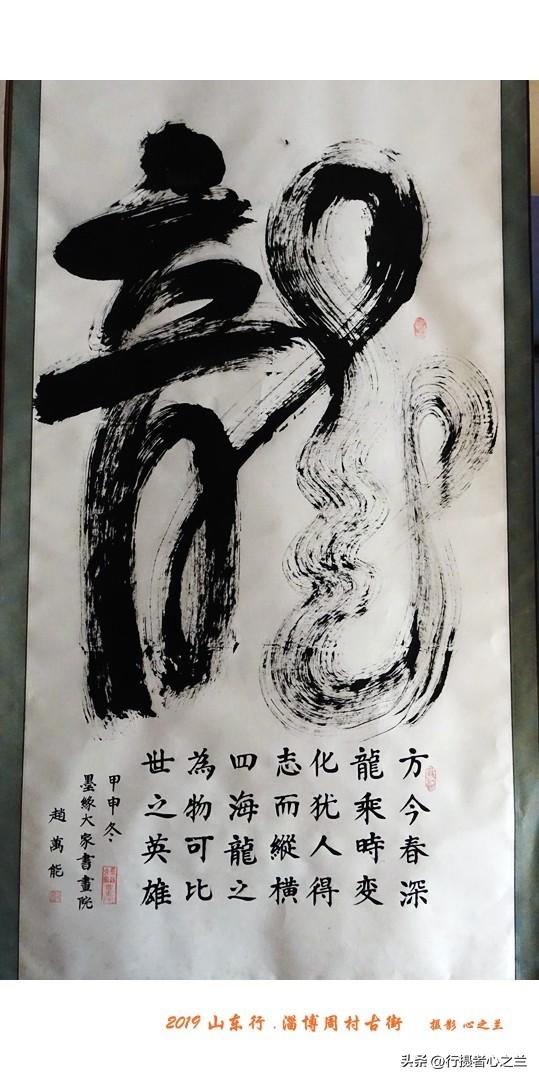 龍
方今春深
龍乘時变
化犹人得
志而縱横
四海龍之
為物可比
世之英雄
甲申冬、
墨缘大家書畫院
趙萬能
2019 山东行 . 淄博周村古街 摄影 心之兰
头条 @行摄者心之兰